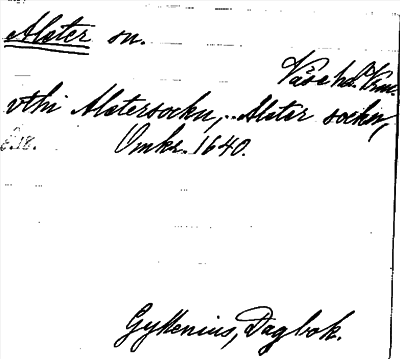 Alster sn.
Väse hd. Vrml.
vthi Alstersockn, .. Alster sockin,
s. 18. Omkr. 1640.
Gyllenius, Dagbok.